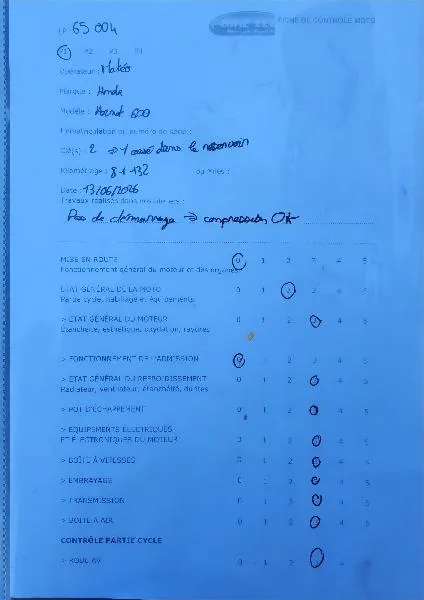 LP 65004
FICHE DE CONTRÔLE MOTO
P1 P2 P3 P4
Opérateur : Matéo
Marque : Honda
Modèle : Hornet 600
Immatriculation ou numéro de série :
Clé(s) : 2 → 1 cassé dans le réservoir
Kilométrage : 81 132 ou Miles :
Date : 13/06/2026
Travaux réalisés dans nos ateliers :
Pas de démarrage → compression OK
MISE EN ROUTE 0 1 2 3 4 5
Fonctionnement général du moteur et des organes
ÉTAT GÉNÉRAL DE LA MOTO 0 1 2 3 4 5
Partie cycle, habillage et équipements
> ÉTAT GÉNÉRAL DU MOTEUR 0 1 2 3 4 5
Étanchéité, esthétique, oxydation, rayures
> FONCTIONNEMENT DE L'ADMISSION 0 1 2 3 4 5
> ÉTAT GÉNÉRAL DU REFROIDISSEMENT 0 1 2 3 4 5
Radiateur, ventilateur, étanchéité, durites
> POT D'ÉCHAPPEMENT 0 1 2 3 4 5
> ÉQUIPEMENTS ÉLECTRIQUES
ET ÉLECTRONIQUES DU MOTEUR 0 1 2 3 4 5
> BOÎTE À VITESSES 0 1 2 3 4 5
> EMBRAYAGE 0 1 2 3 4 5
> TRANSMISSION 0 1 2 3 4 5
> BOITE À AIR 0 1 2 3 4 5
CONTRÔLE PARTIE CYCLE
> ROUE AV 0 1 2 3 4 5